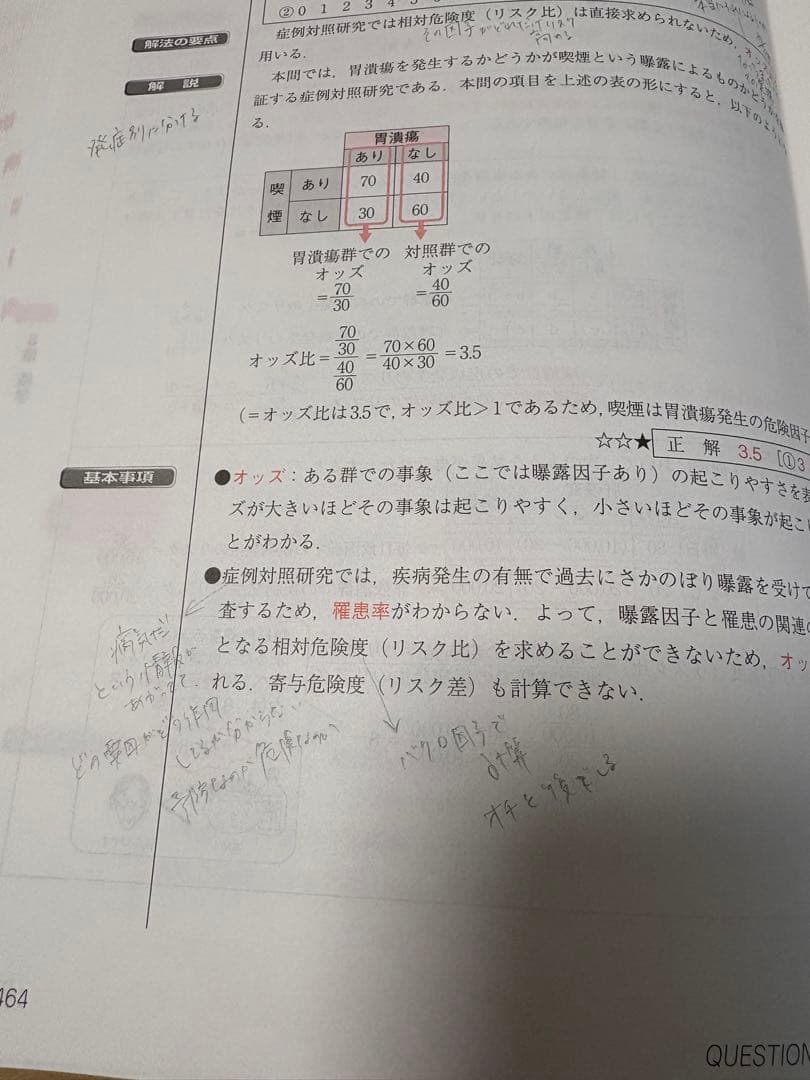 ②0 1 2 3 4 5
症例対照研究では相対危険度(リスク比)は直接求められないため,オ
用いる.
解法の要点
本問では,胃潰瘍を発生するかどうかが喫煙という曝露によるものかどうか
解説
証する症例対照研究である.本問の項目を上述の表の形にすると,以下のように
る.
発症別に分ける
胃潰瘍
あり なし
喫 あり 70 40
煙 なし 30 60
胃潰瘍群での 対照群での
オッズ オッズ
=70/30 =40/60
オッズ比=70/30/40/60=70×60/40×30=3.5
(=オッズ比は3.5で,オッズ比>1であるため,喫煙は胃潰瘍発生の危険因子
☆☆★ 正解 3.5 [①3
基本事項
●オッズ:ある群での事象(ここでは曝露因子あり)の起こりやすさを表
ズが大きいほどその事象は起こりやすく,小さいほどその事象が起こ
とがわかる.
●症例対照研究では,疾病発生の有無で過去にさかのぼり曝露を受けて
査するため,罹患率がわからない.よって,曝露因子と罹患の関連の
となる相対危険度(リスク比)を求めることができないため,オッ
れる.寄与危険度(リスク差)も計算できない.
病気だ
という情報が
あがってて.
どの要因がどの作用
してるか分からない
バクロ因子で
計算
464
QUESTION